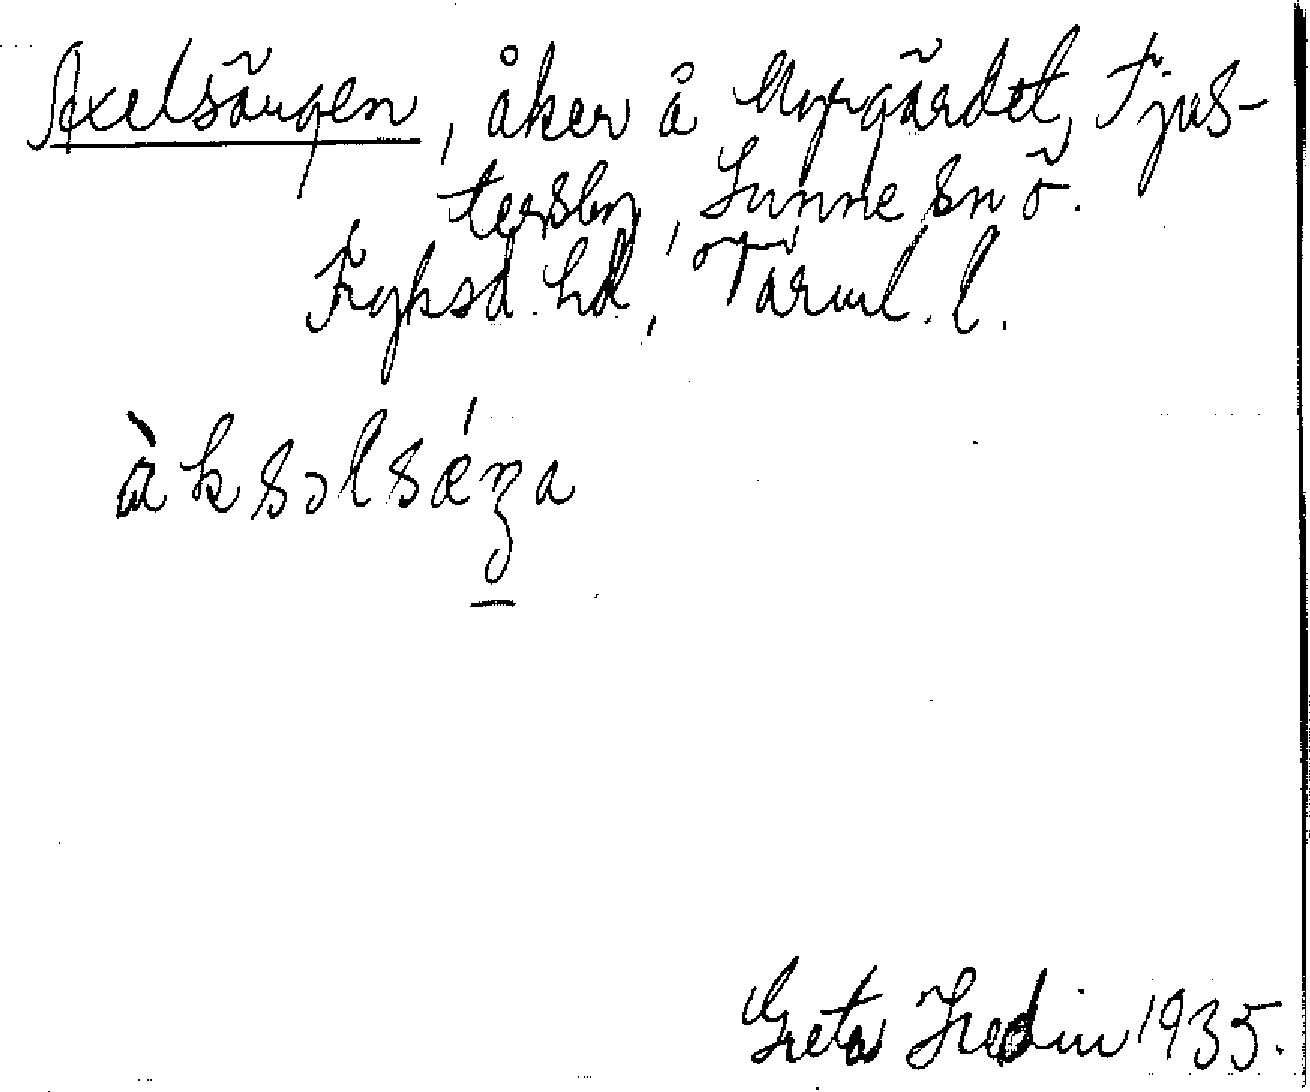 Axelsängen, åker å Uvgärdet, Tjus-
tersby, Sunne sn ö.
Fryksd. hd, Värml. l.
àksəlsǽŋa
Greta Hedin 1935.